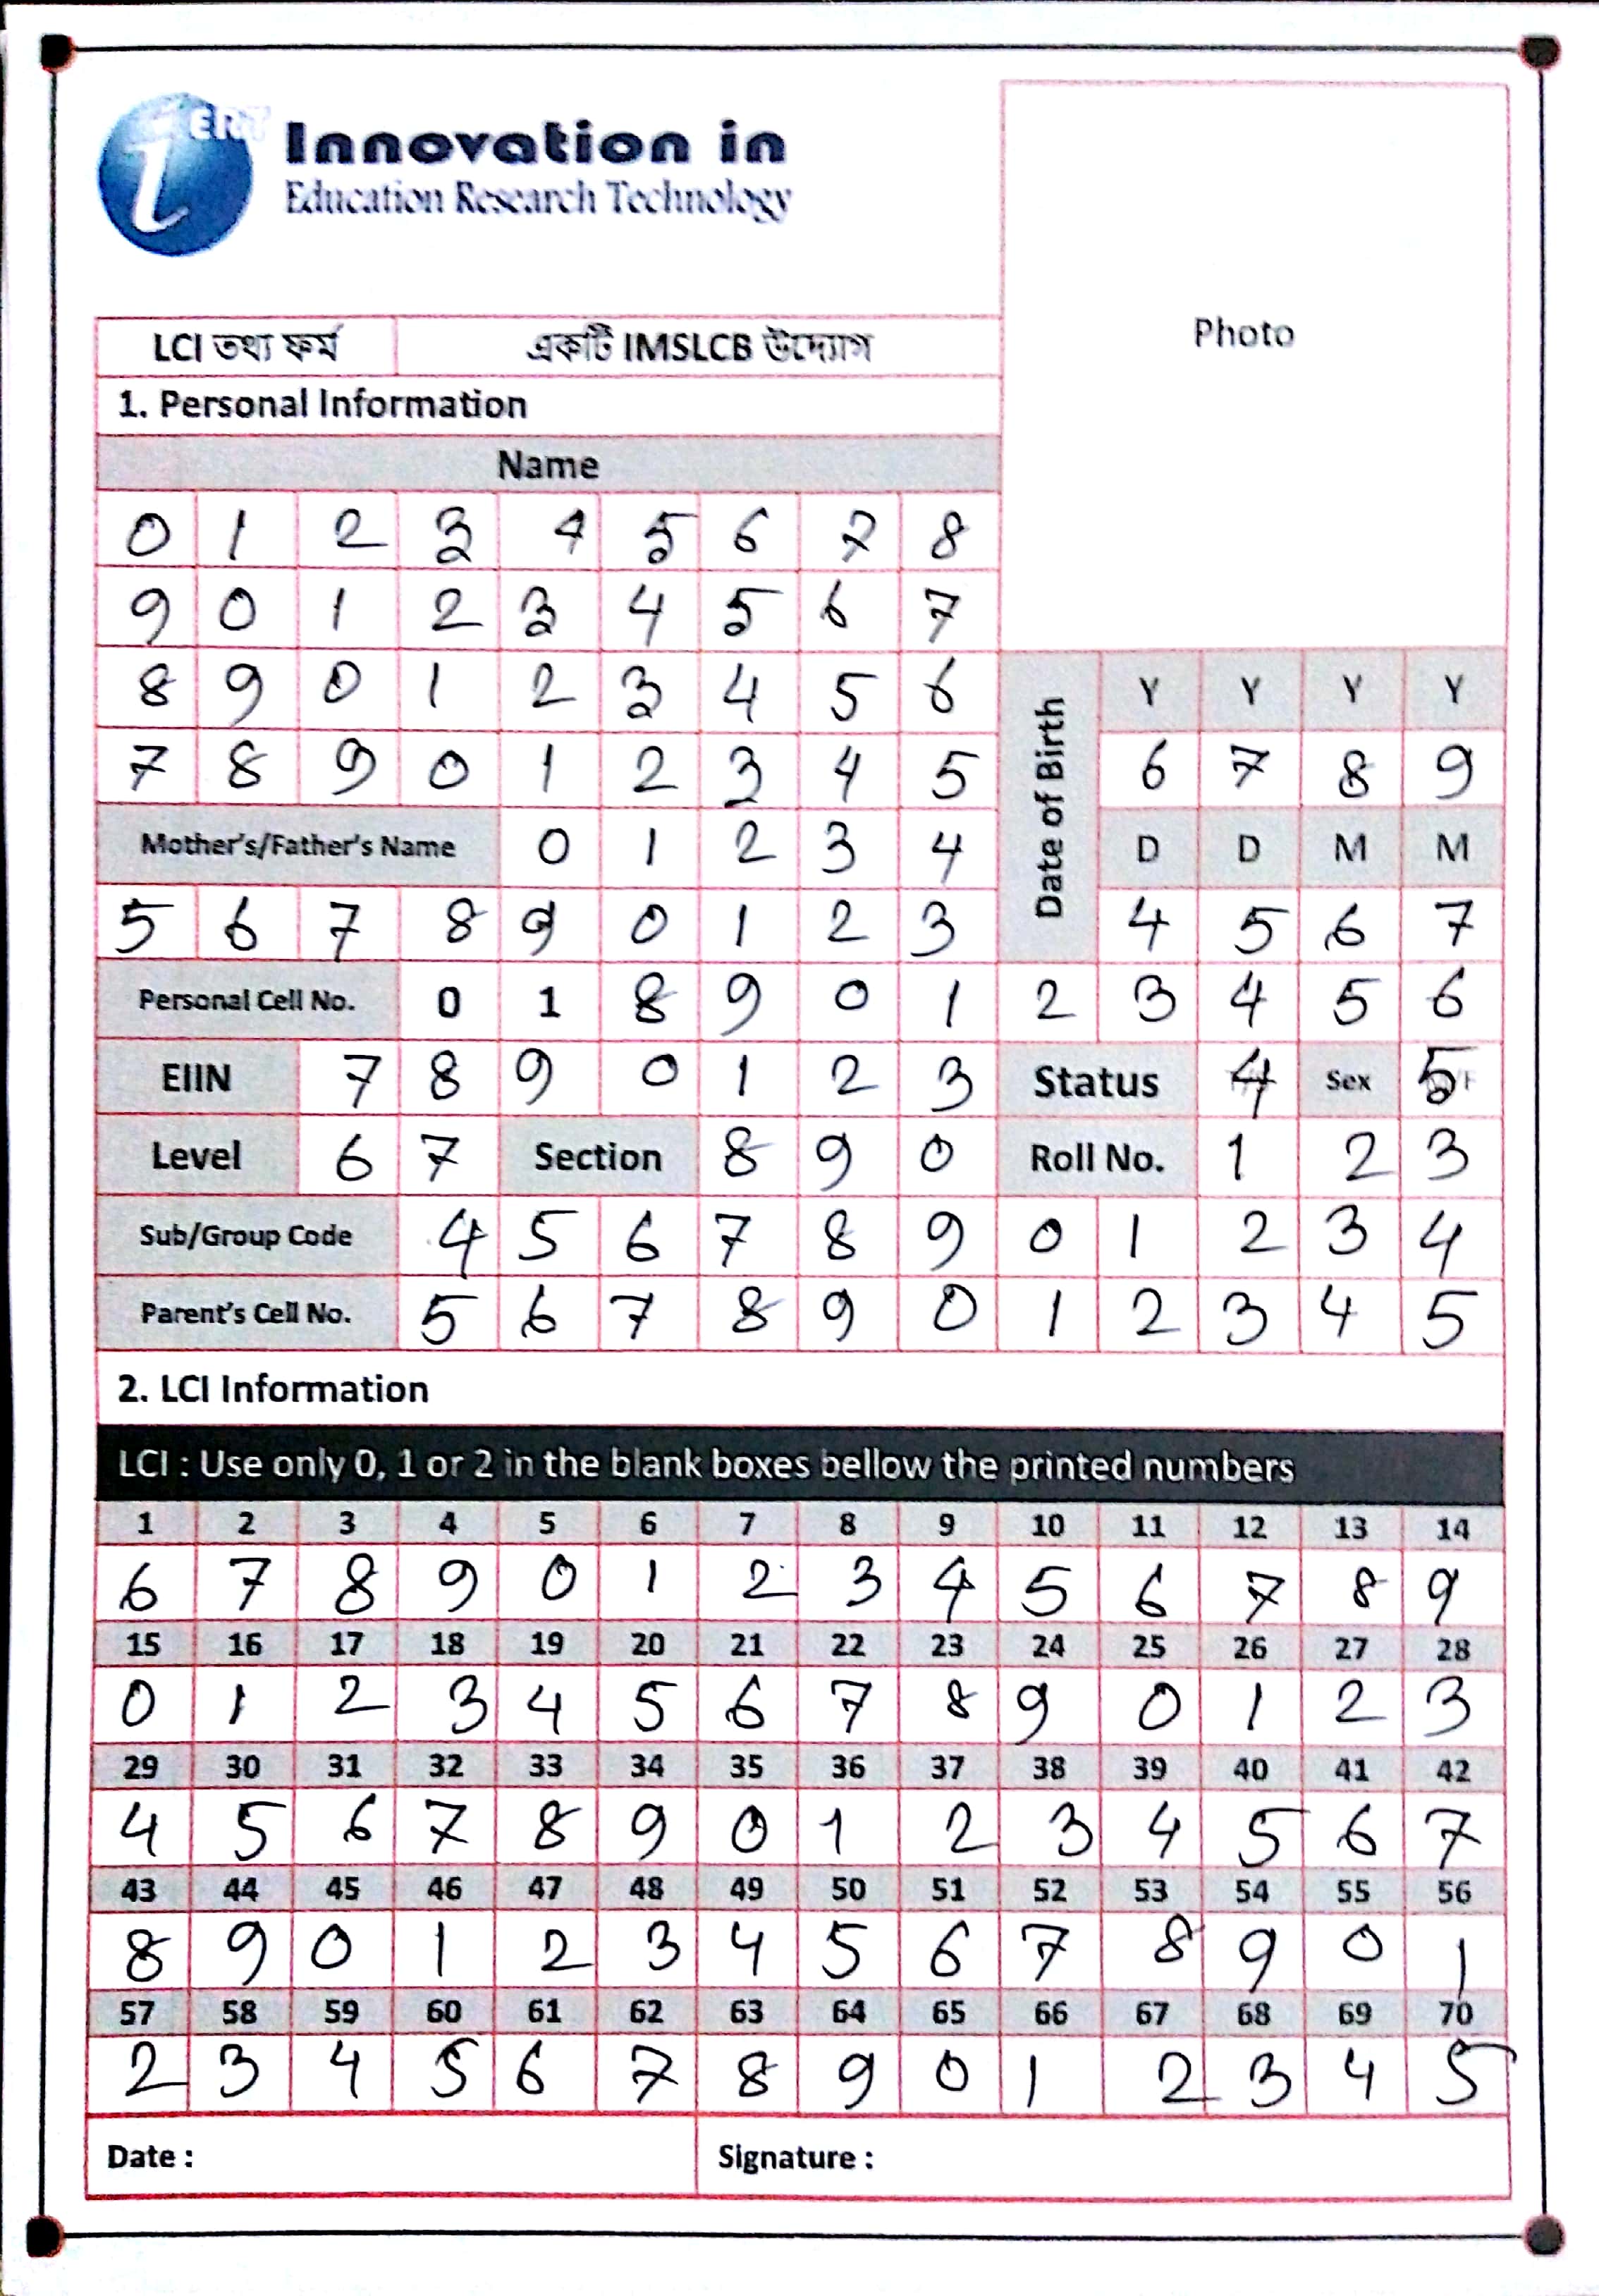 iERT
Innovation in
Education Research Technology
Photo
LCI তথ্য ফর্ম একটি IMSLCB উদ্যোগ
1. Personal Information
Name
0 1 2 3 4 5 6 7 8
9 0 1 2 3 4 5 6 7
8 9 0 1 2 3 4 5 6 Date of Birth Y Y Y Y
7 8 9 0 1 2 3 4 5 6 7 8 9
Mother's/Father's Name 0 1 2 3 4 D D M M
5 6 7 8 9 0 1 2 3 4 5 6 7
Personal Cell No. 0 1 8 9 0 1 2 3 4 5 6
EIIN 7 8 9 0 1 2 3 Status 4 Sex 5
Level 6 7 Section 8 9 0 Roll No. 1 2 3
Sub/Group Code 4 5 6 7 8 9 0 1 2 3 4
Parent's Cell No. 5 6 7 8 9 0 1 2 3 4 5
2. LCI Information
LCI : Use only 0, 1 or 2 in the blank boxes bellow the printed numbers
1 2 3 4 5 6 7 8 9 10 11 12 13 14
6 7 8 9 0 1 2 3 4 5 6 7 8 9
15 16 17 18 19 20 21 22 23 24 25 26 27 28
0 1 2 3 4 5 6 7 8 9 0 1 2 3
29 30 31 32 33 34 35 36 37 38 39 40 41 42
4 5 6 7 8 9 0 1 2 3 4 5 6 7
43 44 45 46 47 48 49 50 51 52 53 54 55 56
8 9 0 1 2 3 4 5 6 7 8 9 0 1
57 58 59 60 61 62 63 64 65 66 67 68 69 70
2 3 4 5 6 7 8 9 0 1 2 3 4 5
Date : Signature :